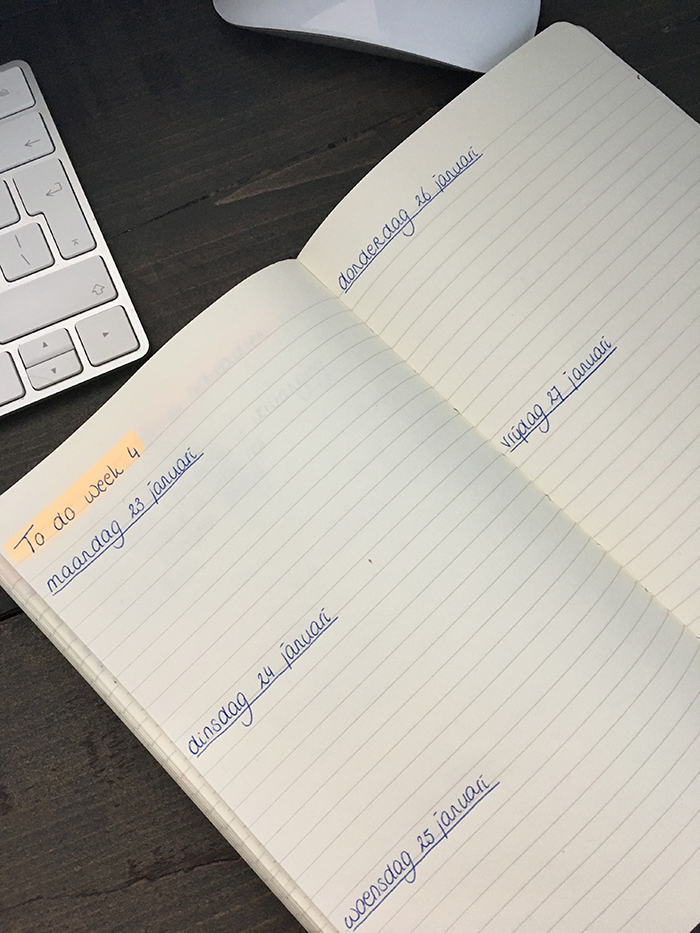 To do week 4
maandag 23 januari
dinsdag 24 januari
woensdag 25 januari
donderdag 26 januari
vrijdag 27 januari